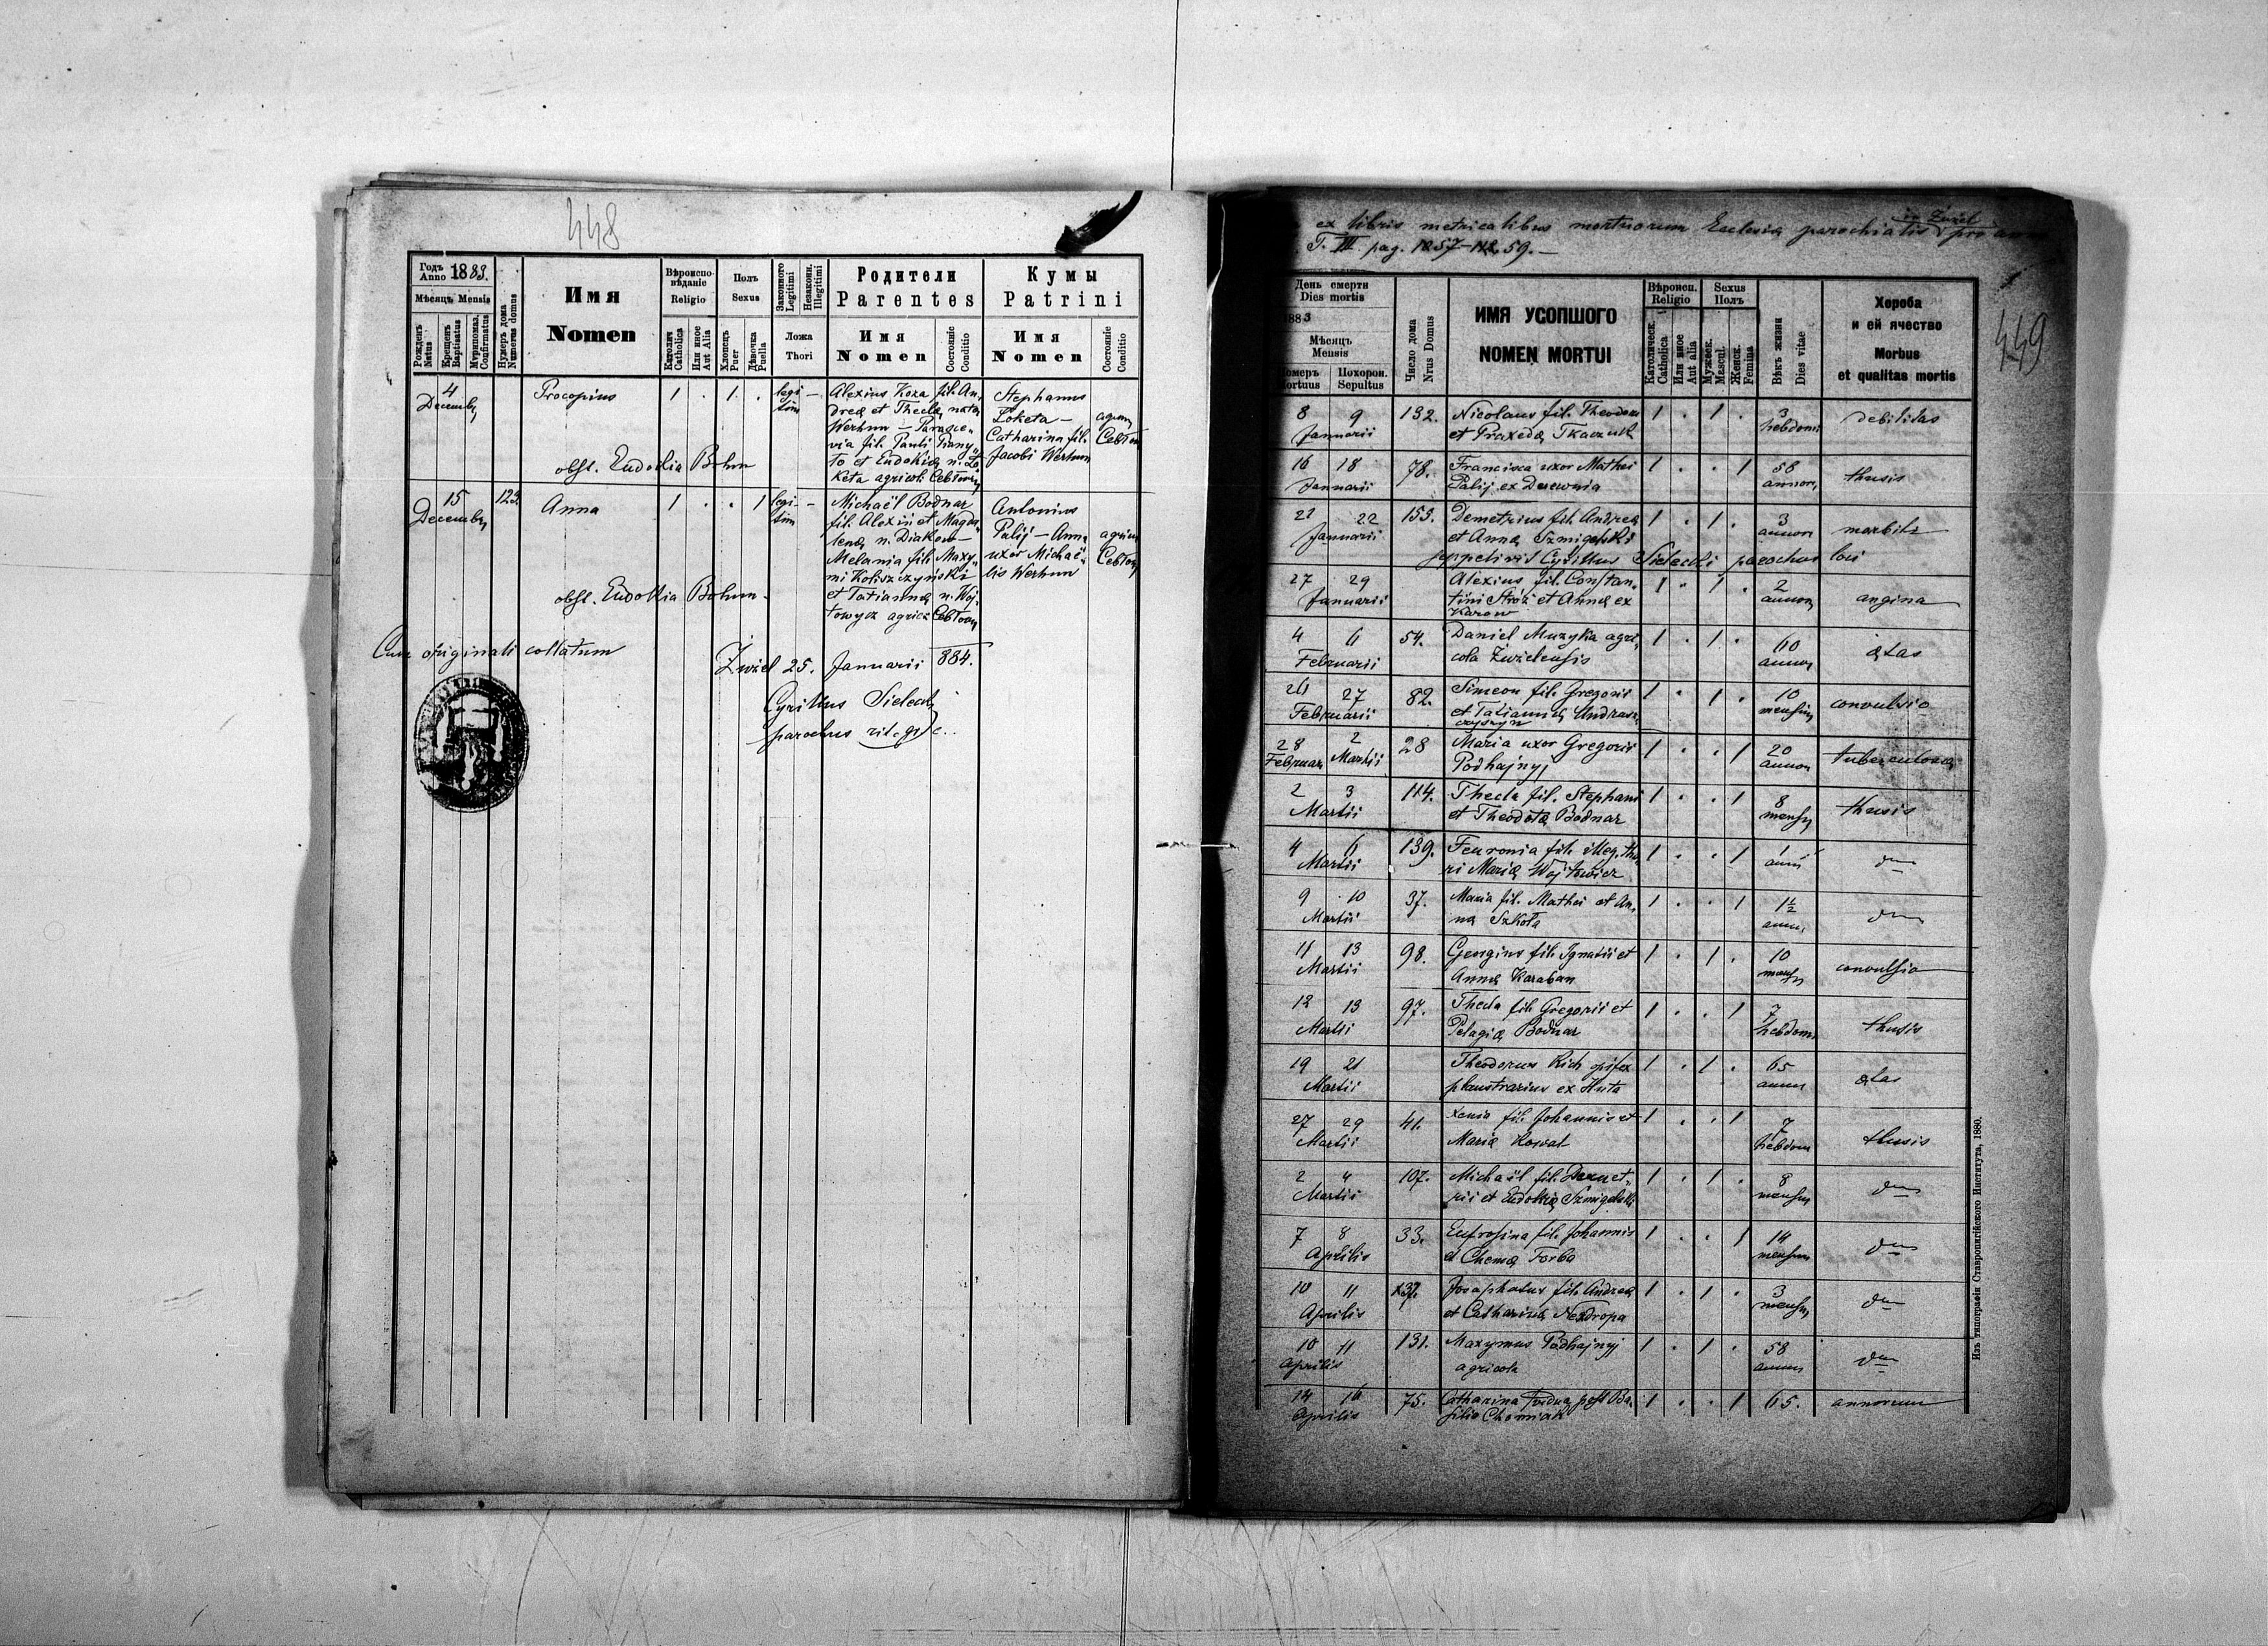 448
Годъ Anno 1883.
Мѣсяцъ Mensis
Рожденъ Natus
Крещенъ Baptisatus
Мѵропомаз. Confirmatus
Нумеръ дома Numerus domus
Имя
Nomen
Вѣроиспо-
вѣданіе
Religio
Католич Catholica
Или иное Aut Alia
Полъ
Sexus
Хлопецъ Puer
Дѣвочка Puella
Законного Legitimi
Незаконн. Illegitimi
Ложа
Thori
Родители
Parentes
Имя
Nomen
Состояніе Conditio
Кумы
Patrini
Имя
Nomen
Состояніе Conditio
4
Decembr
Procopius
1 . 1 .
legi
tim
–
Alexius Koza fil. An,
dreæ et Theclæ natæ
Werhun – Parasce,
via fil. Pauli
to et Eudokiæ n. Lo
keta agricol.
Stephanus
Loketa –
Catharina fil.
Jacobi Werhun
obst. Eudokia Bohun
15
Decembr
123
Anna
1 . . 1
legi,
tim
–
Michaël Bodnar
fil. Alexii et Magda,
lenæ n. Diakow –
Melania fil. Maxy,
mi Koliszczyński
et Tatiannæ n. Woj,
towycz agricol
Antonius
Palij – Anna
uxor Michaë,
lis Werhun
obst. Eudokia Bohun –
Cum originali collatum
Żużel 25. Januarii 884.
Cyrillus Sielecki
parochus rit. gr. c.
ex libris metricalibus mortuorum Ecclesiæ parochialis in Żużel pro anno
T. III pag. 1857–59. –
449
День смерти
Dies mortis
1883
Мѣсяцъ
Mensis
Померъ Mortuus
Похорон. Sepultus
Число дома Nrus Domus
ИМЯ УСОПШОГО
NOMEN MORTUI
Вѣроисп.
Religio
Католическ. Catholica
Или иное Aut alia
Sexus
Полъ
Мужеск. Mascul.
Женск. Femina
Вѣкъ жизни Dies vitae
Хороба
и ей ячество
Morbus
et qualitas mortis
8 9 132. Nicolaus fil. Theodori 1 . 1 . 3 debilitas
Januarii et Praxedæ Tkaczuk hebdom
16 18 78. Francisca uxor Mathei 1 . . 1 58 thusis
Januarii Palij ex Derewnia annor,
21 22 153. Demetrius fil. Andreæ 1 . 1 . 3 morbili
Januarii et Annæ Szmigelski annor
sepelivit Cyrillus Sielecki parochus loci
27 29 Alexius fil. Constan, 1 . 1 . 2 angina
Januarii tini Stróż et Annæ ex annor
Karow
4 6 54. Daniel Muzyka agri, 1 . 1 . 60 ætas
Februarii cola Żużelensis annor
26 27 82. Simeon fil. Gregorii 1 . 1 . 10 convulsio
Februarii et Tatiannæ Andrusz, mensium
czyszyn
28 2 28 Maria uxor Gregorii 1 . . 1 20 tuberculosa
Februar Martii Podhajnyj annor
2 3 114. Thecla fil. Stephani 1 . . 1 8 thusis
Martii et Theodotæ Bodnar mensn
4 6 139. Feuronia fil. illeg. tho, 1 . . 1 1 dto
Martii ri Mariæ Wojtowicz anni
9 10 37. Maria fil. Mathei et An, 1 . . 1 1½ dto
Martii næ Szkoła anni
11 13 98. Georgius fil. Ignatii et 1 . 1 . 10 convulsio
Martii Annæ Karaban mensn
12 13 97. Thecla fil. Gregorii et 1 . . 1 7 thusis
Martii Pelagiæ Bodnar hebdom
19 21 Theodorus Rich opifex 1 . 1 . 65 ætas
Martii plaustrarius ex Huta annor
27 29 41. Xenia fil. Johannis et 1 . . 1 7 thusis
Martii Mariæ Kowal hebdom
2 4 107. Michaël fil. Demet, 1 . 1 . 8 dto
Martii rii et Eudokiæ Szmigelski mensn
7 8 33. Eufrosina fil. Johannis 1 . . 1 14 dto
Aprilis et Chemæ Torba mensn
10 11 137. Josaphatus fil. Andreæ 1 . 1 . 3 dto
Aprilis et Catharinæ Nezdropa mensn
10 11 131. Maxymus Podhajnyj 1 . 1 . 58 dto
Aprilis agricola annor
14 16 75. Catharina vidua post Ba, 1 . . 1 65. annorum
Aprilis silio Chomiak
Изъ типографіи Ставропигійского Института, 1880.